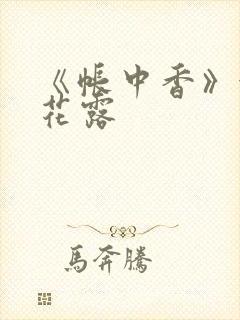 《帳中香》
花露
馬奔騰